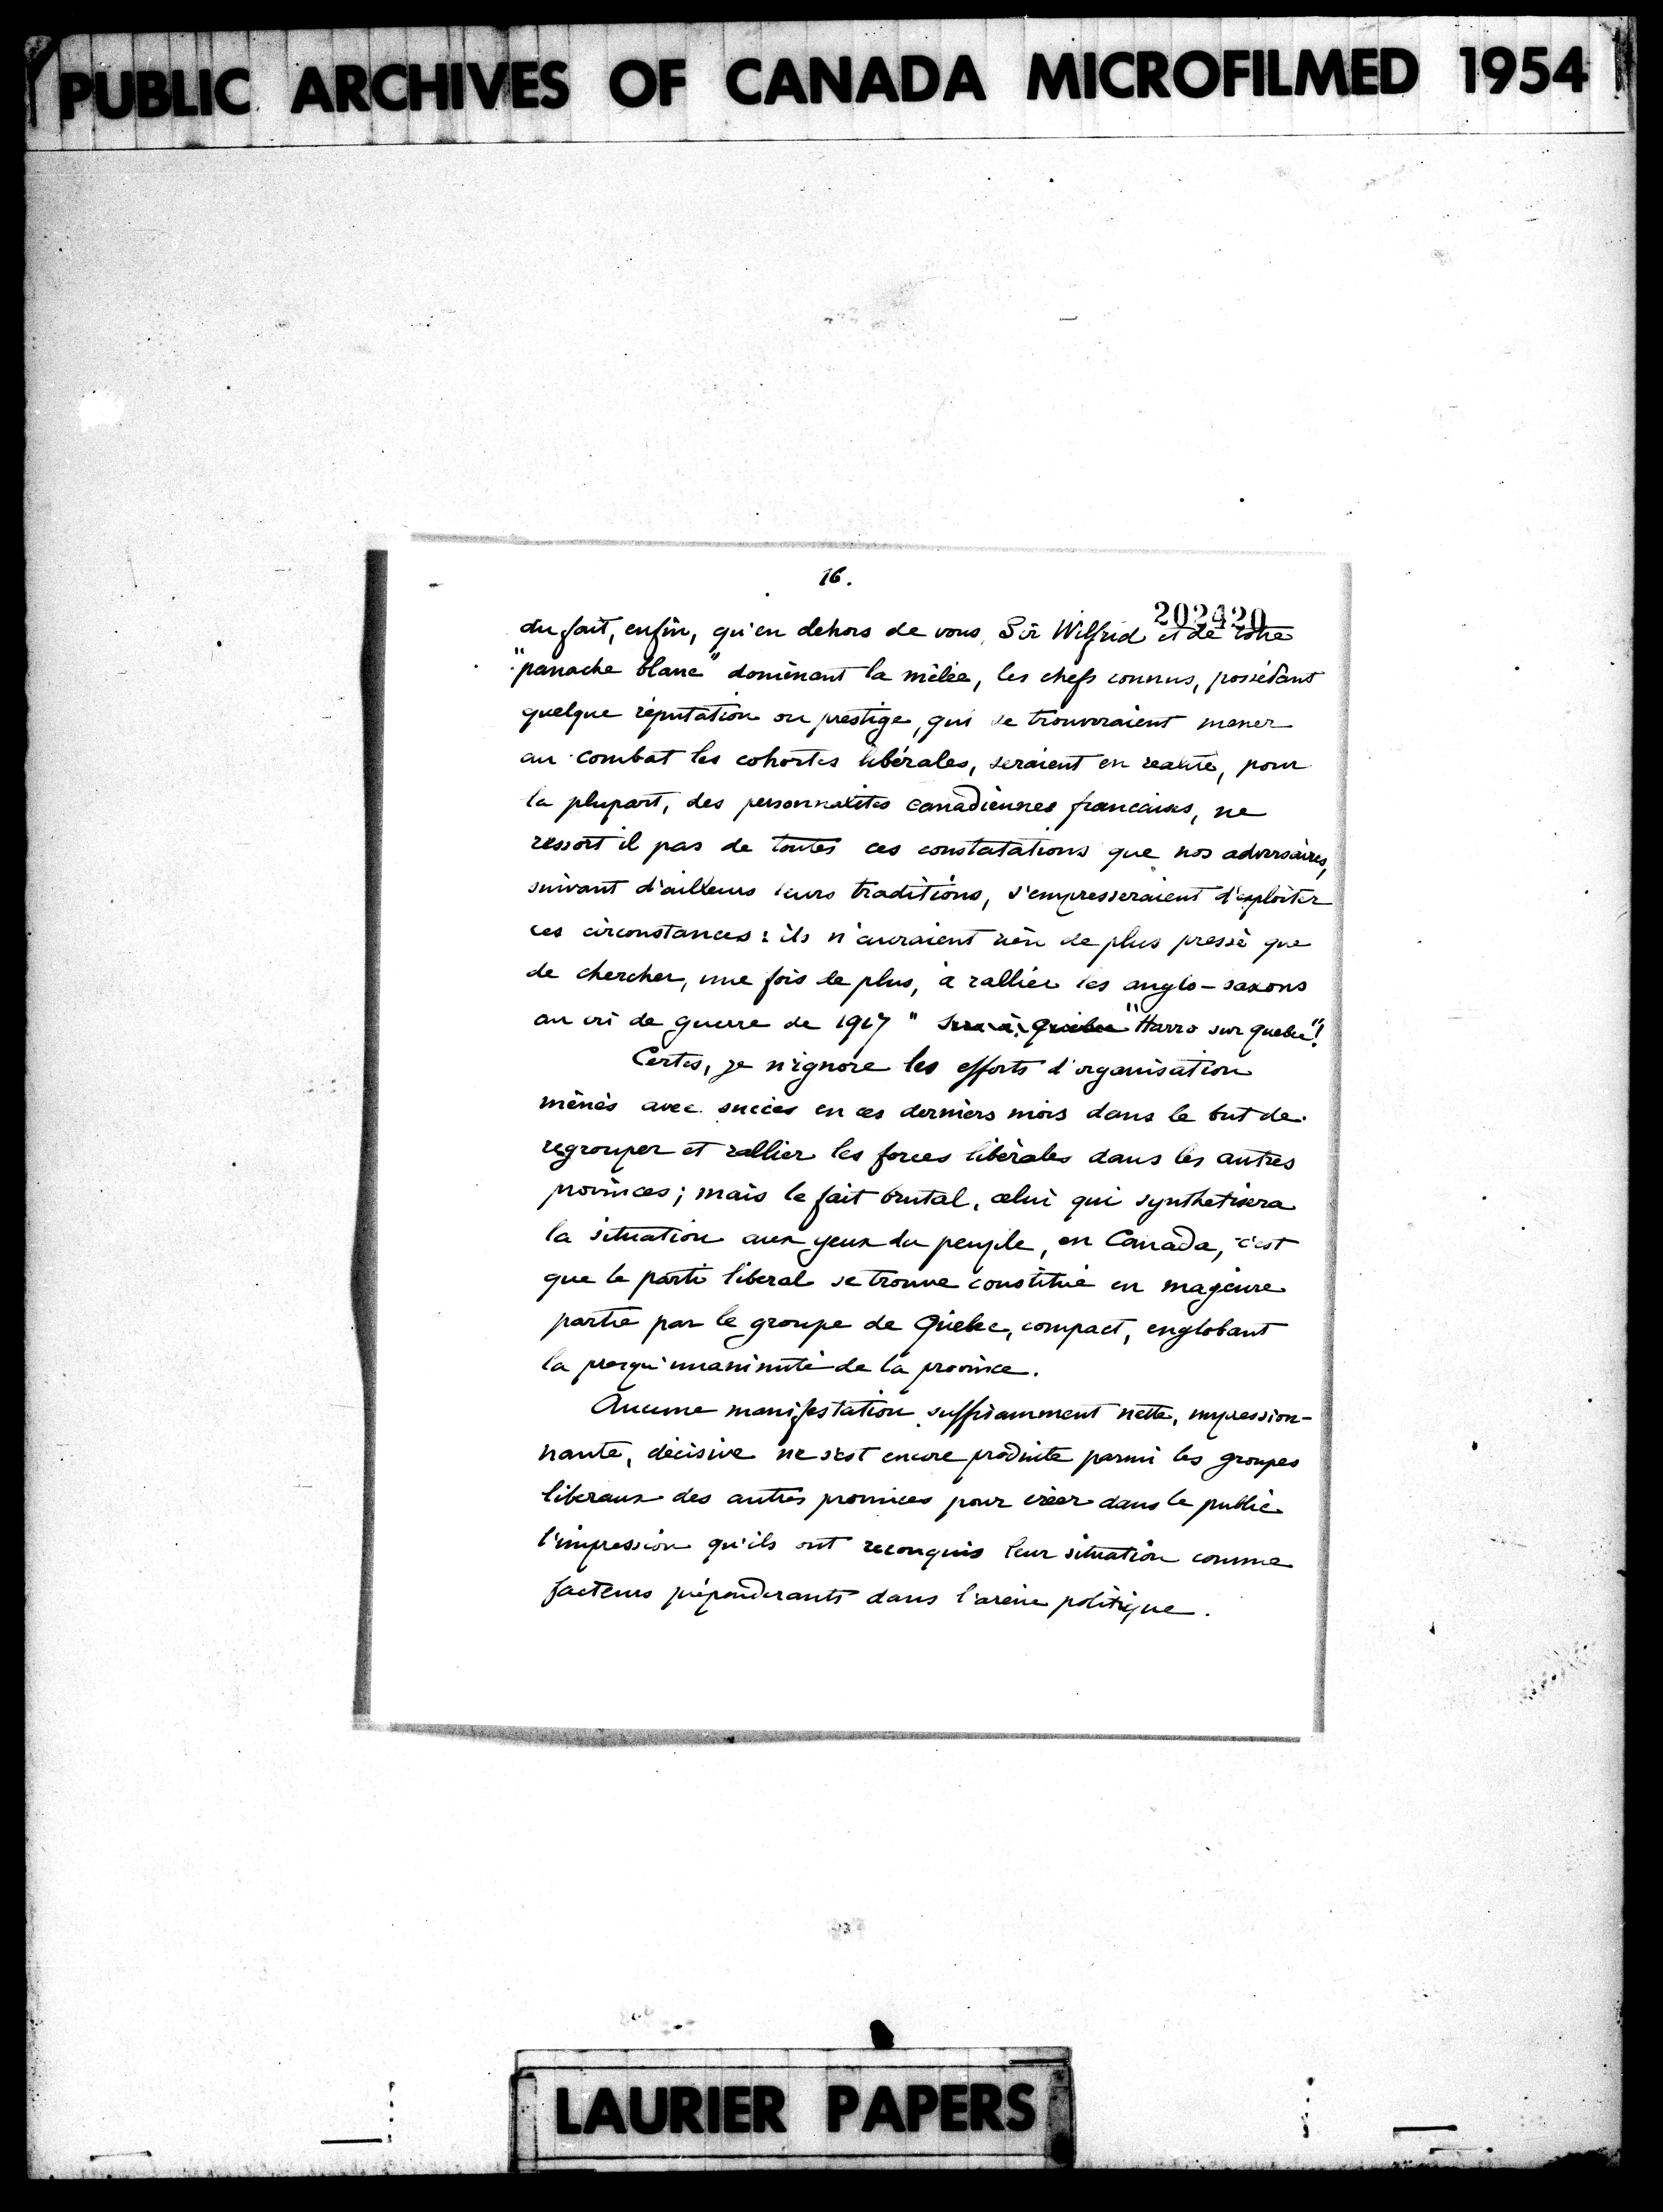 PUBLIC ARCHIVES OF CANADA MICROFILMED 1954
16.
202420
du fait, enfin, qu'en dehors de vous, Sir Wilfrid et de votre
"panache blanc" dominant la mêlée, les chefs connus, possédant
quelque réputation ou prestige, qui se trouveraient mener
au combat les cohortes libérales, seraient en réalité, pour
la plupart, des personnalités canadiennes francaises, ne
ressort il pas de toutes ces constatations que nos adversaires,
suivant d'ailleurs leurs traditions, s'empresseraient d'exploiter
ces circonstances: ils n'auraient rien de plus pressé que
de chercher, une fois de plus, à rallier les anglo-saxons
au cri de guerre de 1917 " "Harro sur Quebec"!
Certes, je n'ignore les efforts d'organisation
menés avec succès en ces derniers mois dans le but de
regrouper et rallier les forces libérales dans les autres
provinces; mais le fait brutal, celui qui synthetisera
la situation aux yeux du peuple, en Canada, c'est
que le parti libéral se trouve constitué en majeure
partie par le groupe de Québec, compact, englobant
la presqu'unanimité de la province.
Aucune manifestation suffisamment nette, impression-
nante, décisive ne s'est encore produite parmi les groupes
liberaux des autres provinces pour créer dans le public
l'impression qu'ils ont reconquis leur situation comme
facteurs prépondérants dans l'arène politique.
LAURIER PAPERS